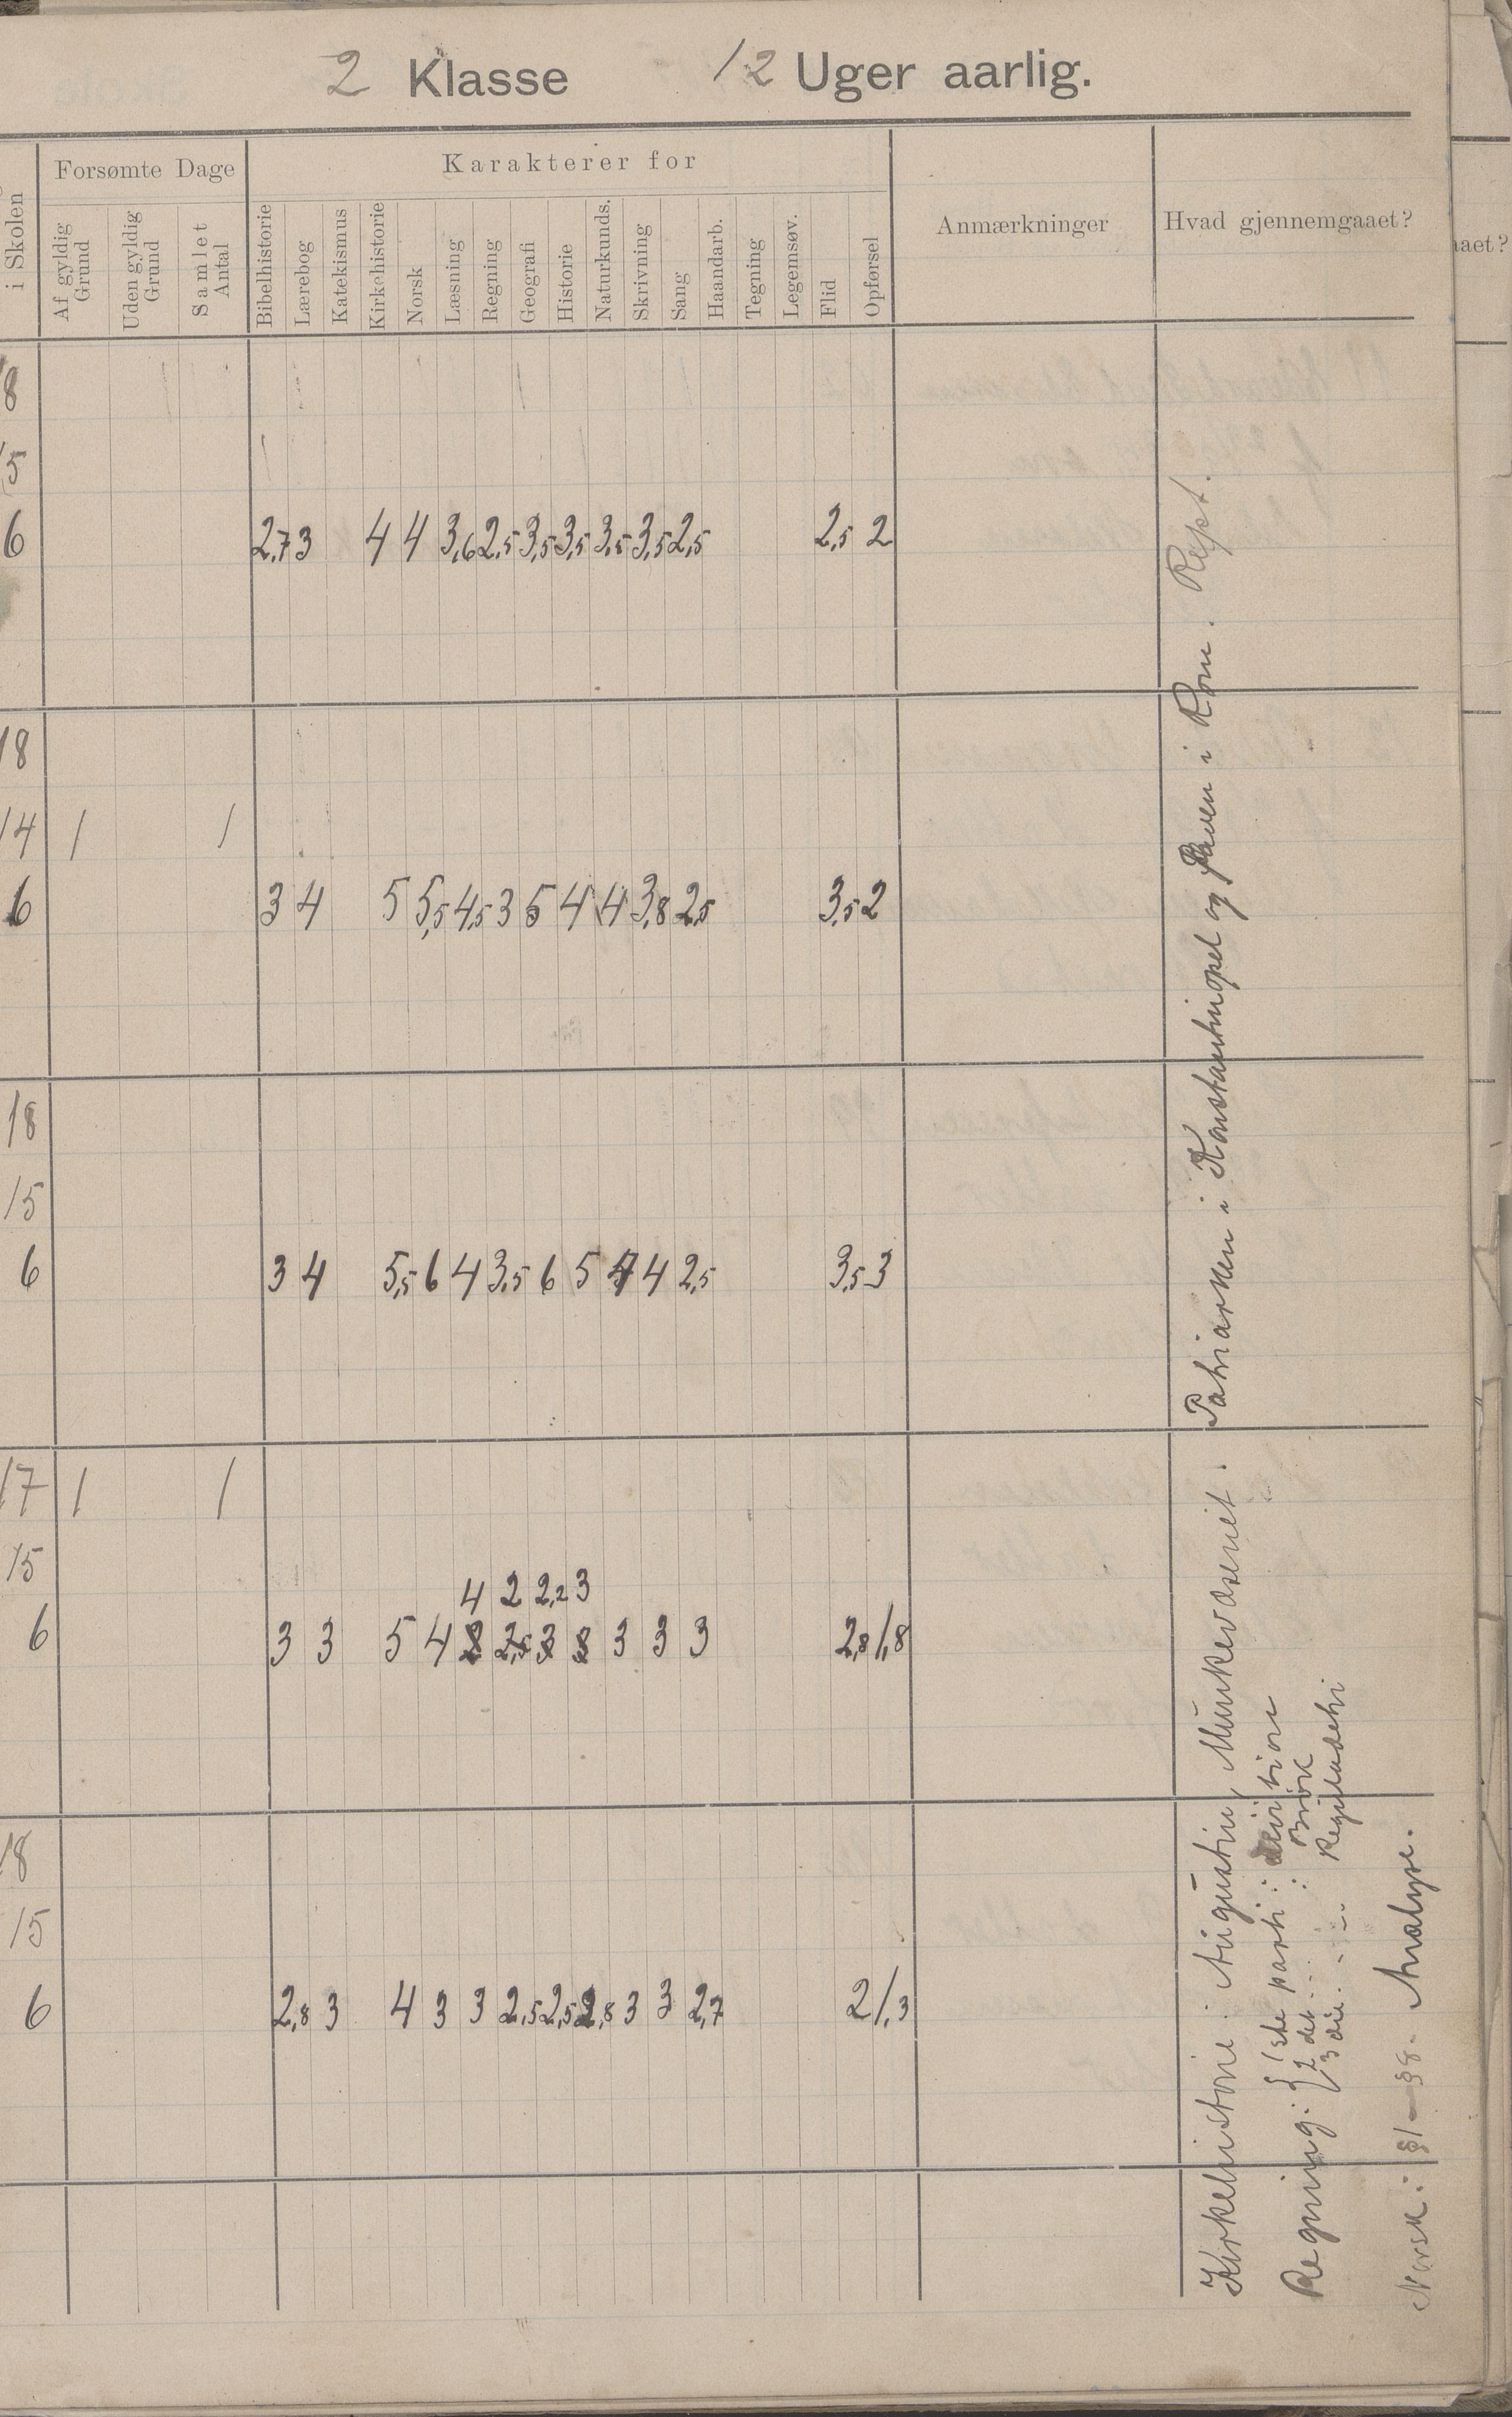 2 Klasse 12 Uger aarlig.
i Skolen
Forsømte Dage
Karakterer for
Anmærkninger
Hvad gjennemgaaet?
aaet?
Af gyldig Grund
Uden gyldig Grund
Samlet Antal
Bibelhistorie
Lærebog
Katekismus
Kirkehistorie
Norsk
Læsning
Regning
Geografi
Historie
Naturkunds.
Skrivning
Sang
Haandarb.
Tegning
Legemsøv.
Flid
Opførsel
18
15
6 2,7 3 4 4 3,6 2,5 3,5 3,5 3,5 3,5 2,5 2,5 2
18
14 1 1
6 3 4 5 5,5 4,5 3 5 4 4 3,8 2,5 3,5 2
18
15
6 3 4 5,5 6 4 3,5 6 5 4 4 2,5 3,5 3
17 1 1
15
4 2 2,2 3
6 3 3 5 4 3 2,5 3 3 3 3 3 2,8 1,8
18
15
6 2,8 3 4 3 3 2,5 2,5 2,8 3 3 2,7 2 1,3
Kirkehistorie: Augustin, Munkevæsenet. Patriarken i Konstantinopel og Paven i Rom. Rept.
Regning: { 1ste parti: division
2det - - : Brøk
3die - - - Reguladetri
Norsk: §1 - §8. Analyse.